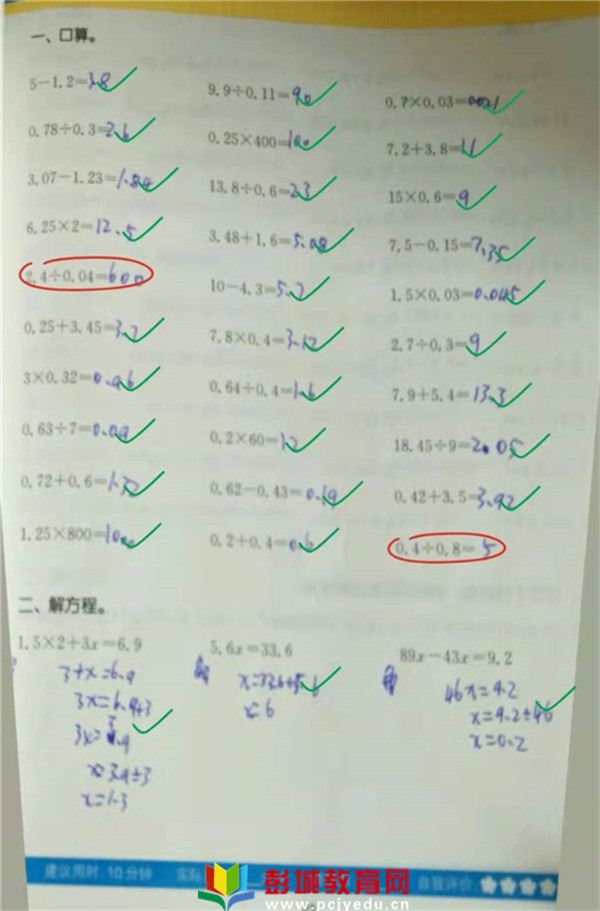 一、口算。
5-1.2=3.8 9.9÷0.11=90 0.7×0.03=0.021
0.78÷0.3=2.6 0.25×400=100 7.2+3.8=11
3.07-1.23=1.84 13.8÷0.6=23 15×0.6=9
6.25×2=12.5 3.48+1.6=5.08 7.5-0.15=7.35
2.4÷0.04=600 10-4.3=5.7 1.5×0.03=0.045
0.25+3.45=3.7 7.8×0.4=3.12 2.7÷0.3=9
3×0.32=0.96 0.64÷0.4=1.6 7.9+5.4=13.3
0.63÷7=0.09 0.2×60=12 18.45÷9=2.05
0.72+0.6=1.32 0.62-0.43=0.19 0.42+3.5=3.92
1.25×800=1000 0.2+0.4=0.6 0.4÷0.8=5
二、解方程。
1.5×2+3x=6.9 5.6x=33.6 89x-43x=9.2
3+x=6.9 x=33.6÷5.6 46x=9.2
3x=6.9+3 x=6 x=9.2÷46
3x=3.9 x=0.2
x=3.9÷3
x=1.3
建议用时：10分钟 实际 自我评价
彭城教育网
www.pcjyedu.cn